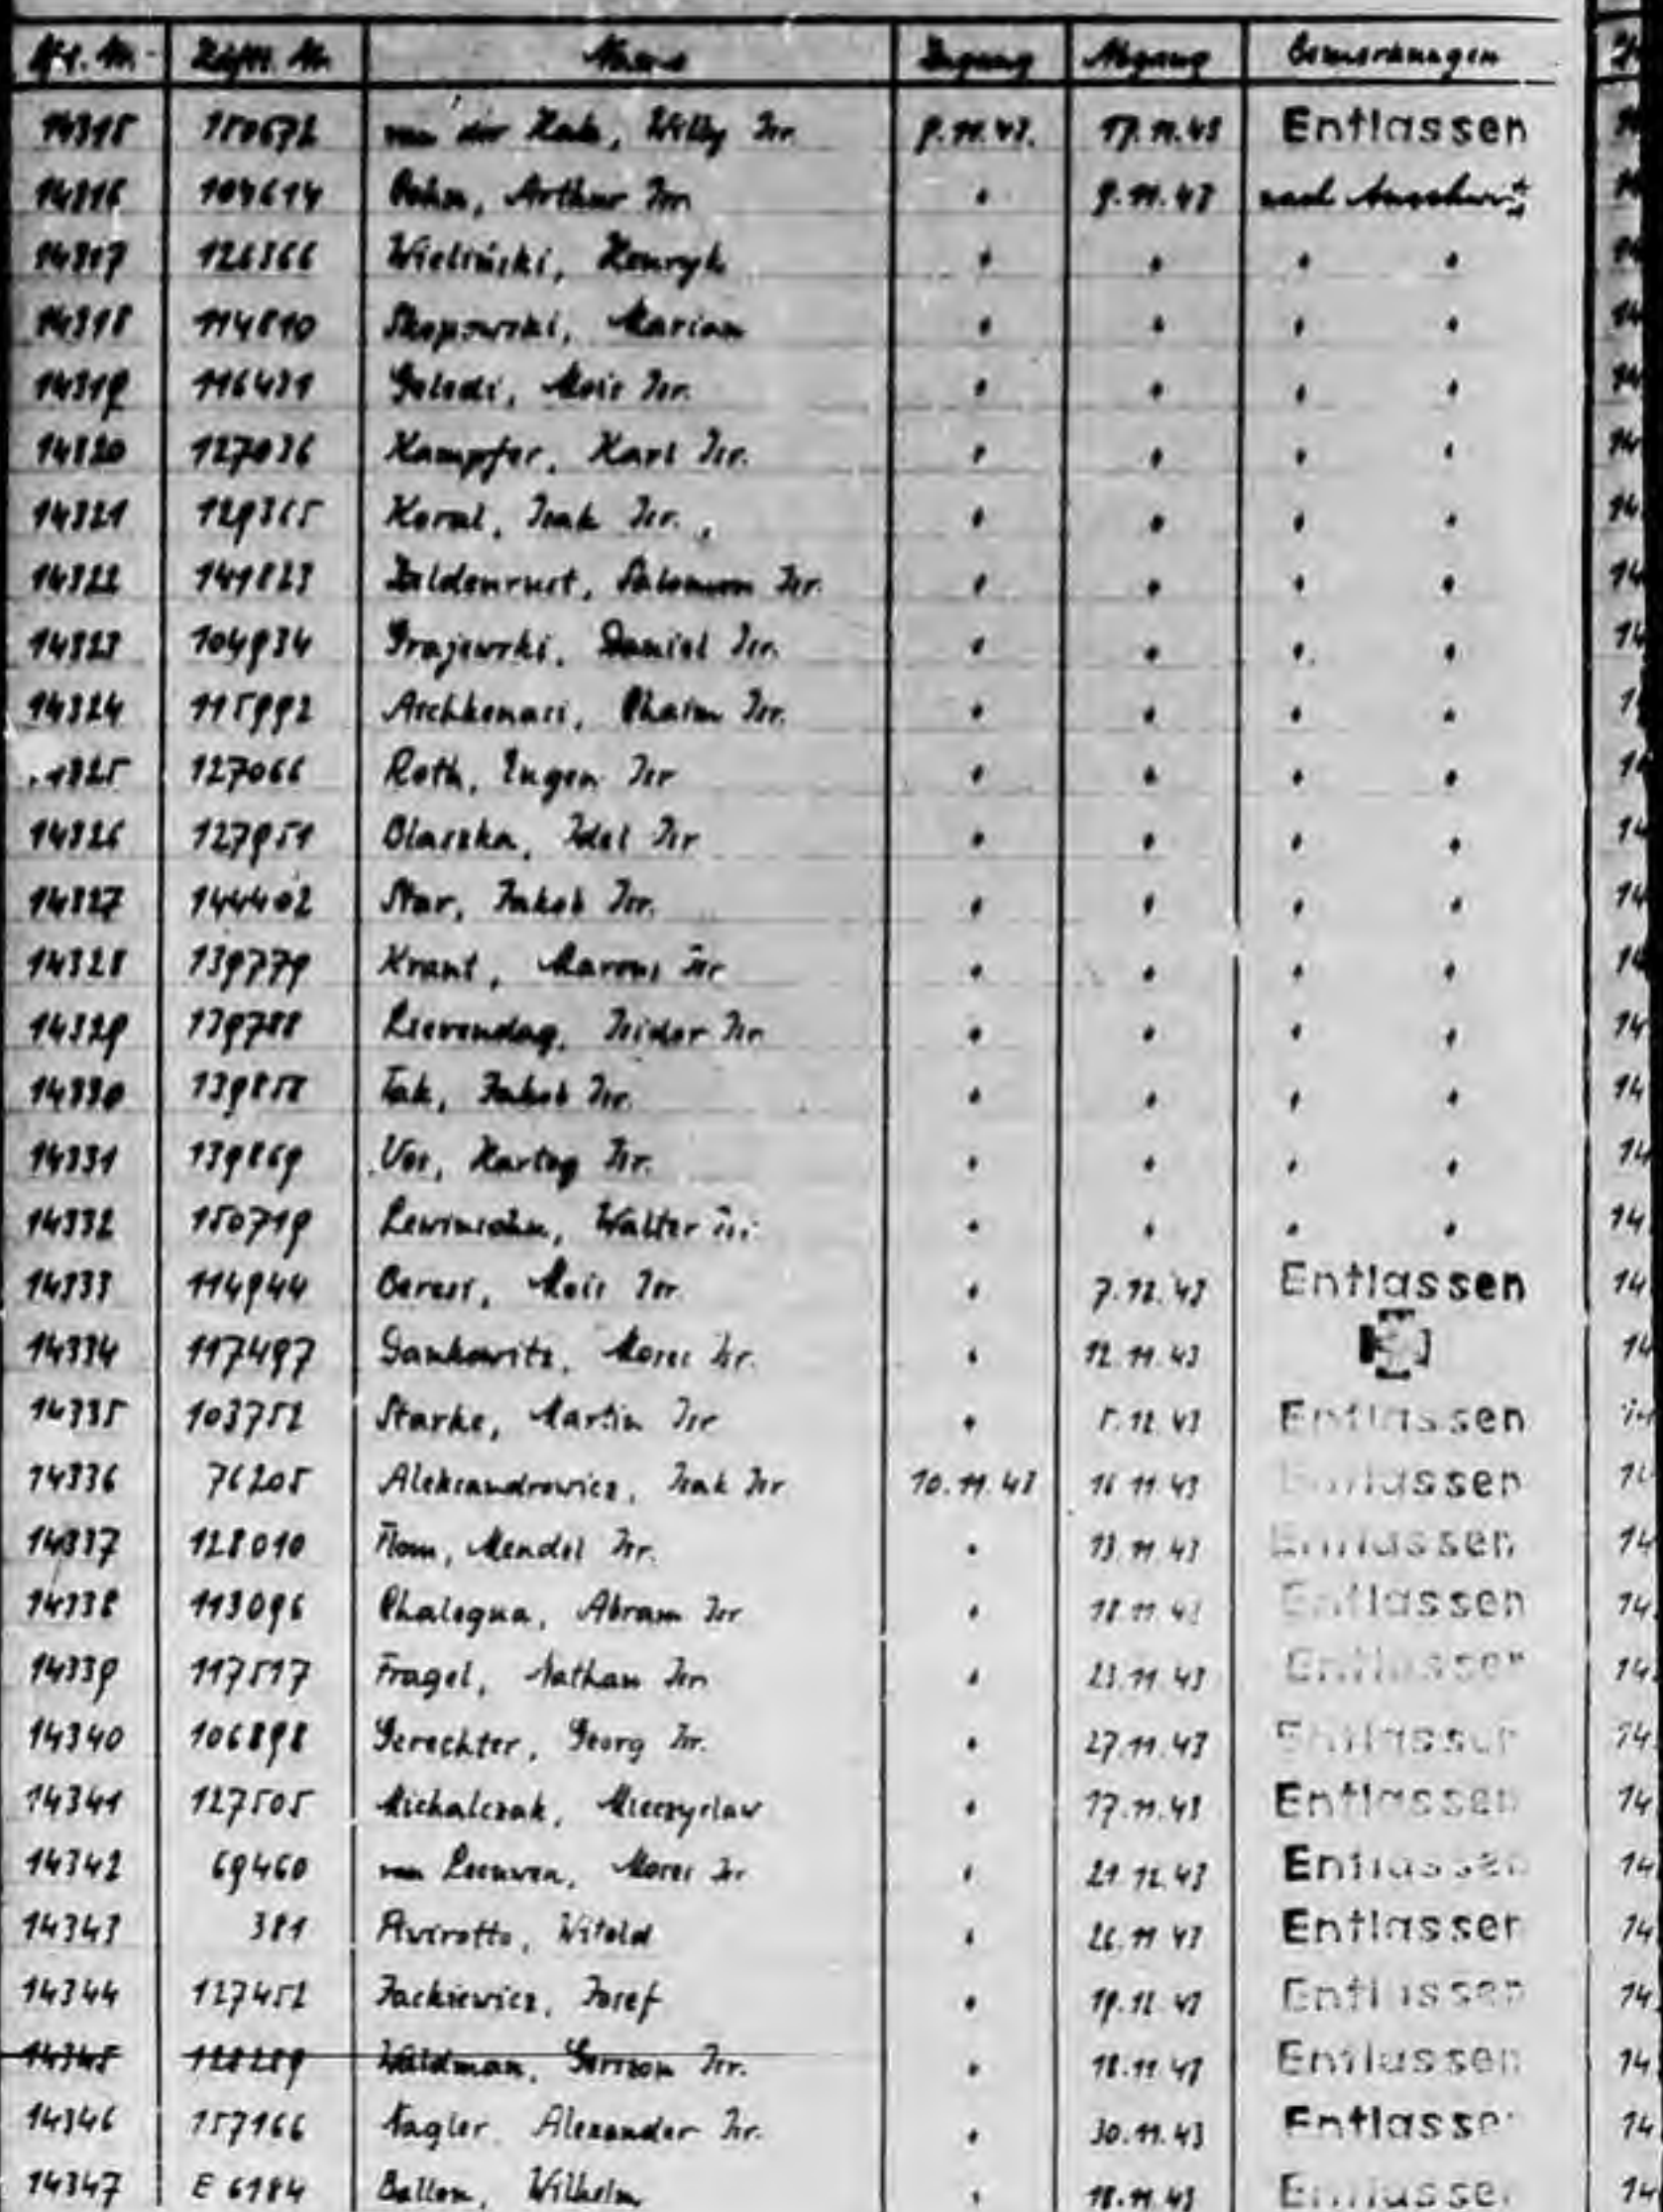 Lfd. Nr. Häftl. Nr. Name Zugang Abgang Bemerkungen
14315 150672 van der Hak, Willy Isr. 9.11.43. 17.11.43 Entlassen
14316 104614 Arthur Isr. " 9.11.43 nach Auschwitz
14317 126366 Wieliński, Henryk " " " "
14318 114810 Skopowski, Marian " " " "
14319 116431 Mois Isr. " " " "
14320 127036 Kampfer, Karl Isr. " " " "
14321 129365 Koral, Isak Isr. " " " "
14322 141823 Zaldenrust, Salomon Isr. " " " "
14323 104934 Grajewski, Daniel Isr. " " " "
14324 115992 Aschkenasi, Chaim Isr. " " " "
14325 127066 Roth, Eugen Isr " " " "
14326 127951 Blaszka, Idel Isr " " " "
14327 144402 Star, Jakob Isr. " " " "
14328 139779 Krant, Marcus Isr " " " "
14329 139788 Lievendag, Isidor Isr " " " "
14330 139858 Tak, Jakob Isr. " " " "
14331 139869 Vos, Hartog Isr. " " " "
14332 150719 Lewinsohn, Walter Isr. " " " "
14333 114944 Beresi, Mois Isr. " 7.12.43 Entlassen
14334 117497 Dankowitz, Moses Isr. " 12.11.43
14335 103752 Starke, Martin Isr " 5.12.43 Entlassen
14336 76205 Aleksandrowicz, Isak Isr 10.11.43 16.11.43 Entlassen
14337 128010 Flom, Mendel Isr. " 13.11.43 Entlassen
14338 113096 Chalegua, Abram Isr " 18.11.43 Entlassen
14339 117517 Fragel, Nathan Isr. " 23.11.43 Entlassen
14340 106898 Gerechter, Georg Isr. " 27.11.43 Entlassen
14341 127505 Michalczak, Mieczyslaw " 17.11.43 Entlassen
14342 69460 van Leeuwen, Moses Isr " 21.12.43 Entlassen
14343 381 Witold " 26.11.43 Entlassen
14344 127452 Jackiewicz, Josef " 19.12.43 Entlassen
14345 128289 Waldman, Gerszon Isr. " 18.11.43 Entlassen
14346 157166 Nagler Alexander Isr. " 30.11.43 Entlassen
14347 E 6184 Ballon, Wilhelm " 18.11.43 Entlassen